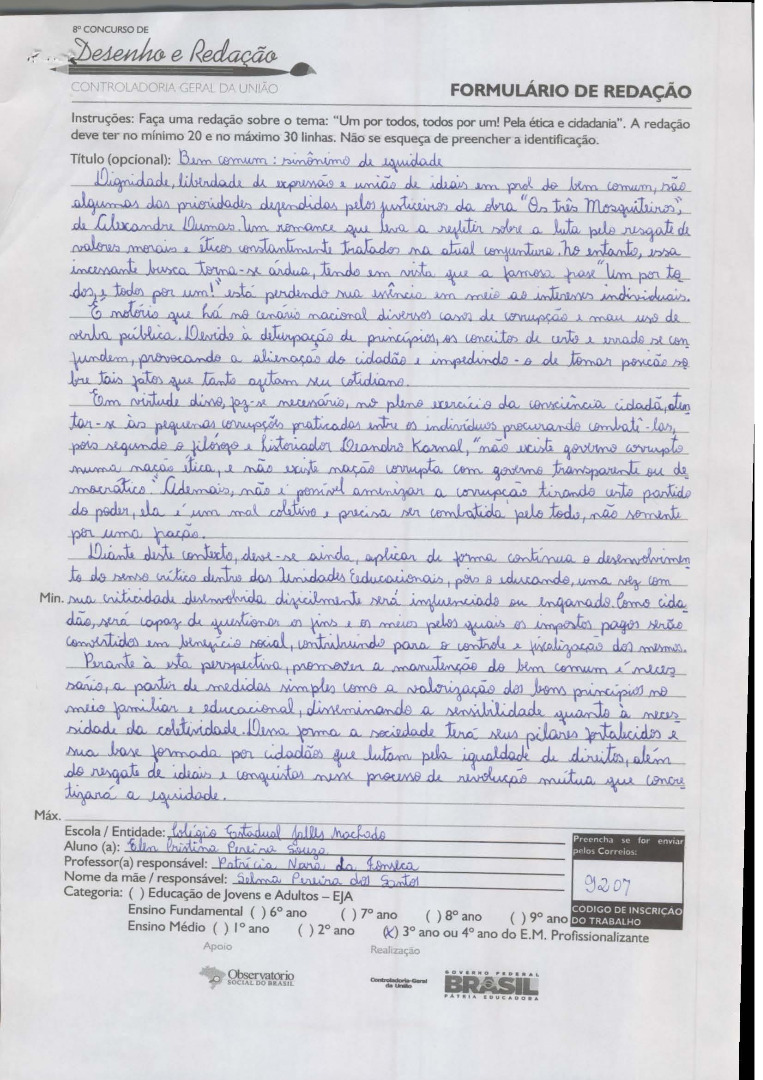 8º CONCURSO DE
Desenho e Redação
CONTROLADORIA GERAL DA UNIÃO
FORMULÁRIO DE REDAÇÃO
Instruções: Faça uma redação sobre o tema: "Um por todos, todos por um! Pela ética e cidadania". A redação
deve ter no mínimo 20 e no máximo 30 linhas. Não se esqueça de preencher a identificação.
Título (opcional): Bem comum : sinônimo de equidade
Dignidade, liberdade de expressão e união de ideais em prol do bem comum, são
algumas das prioridades defendidas pelos justiceiros da obra "Os três Mosquiteiros",
de Alexandre Dumas. Um romance que leva a refletir sobre a luta pelo resgate de
valores morais e éticos constantemente tratados na atual conjuntura. No entanto, essa
incessante busca torna-se árdua, tendo em vista que a famosa frase "Um por to
dos, e todos por um!" está perdendo sua essência em meio ao interesses individuais.
É notório que há no cenário nacional diversos casos de corrupção e mau uso de
verba pública. Devido à deturpação de princípios, os conceitos de certo e errado se con
fundem, provocando a alienação do cidadão e impedindo-o de tomar posição so
bre tais fatos que tanto afetam seu cotidiano.
Em virtude disso, faz-se necessário, no pleno exercício da consciência cidadã, aten
tar-se às pequenas corrupções praticadas entre os indivíduos procurando combatê-las,
pois segundo o filósofo e historiador Leandro Karnal, "não existe governo corrupto
numa nação ética, e não existe nação corrupta com governo transparente ou de
mocrático". Ademais, não é possível amenizar a corrupção tirando certo partido
do poder, ela é um mal coletivo e precisa ser combatida pelo todo, não somente
por uma fração.
Diante deste contexto, deve-se ainda, aplicar de forma contínua o desenvolvimen
to do senso crítico dentro das Unidades Eeducacionais, pois o educando, uma vez com
Min. sua criticidade desenvolvida dificilmente será influenciado ou enganado. Como cida
dão, será capaz de questionar os fins e os meios pelos quais os impostos pagos serão
convertidos em benefício social, contribuindo para o controle e fiscalização dos mesmos.
Perante à esta perspectiva, promover a manutenção do bem comum é neces
sário, a partir de medidas simples como a valorização dos bons princípios no
meio familiar e educacional, disseminando a sensibilidade quanto à neces
sidade da coletividade. Dessa forma a sociedade terá seus pilares fortalecidos e
sua base formada por cidadãos que lutam pela igualdade de direitos, além
do resgate de ideais e conquistas nesse processo de revolução mútua que concre
tizará a equidade.
Máx.
Escola / Entidade: Colégio Estadual Jalles Machado
Aluno (a): Elen Cristina Pereira Souza
Professor(a) responsável: Patrícia Nara da Fonseca
Nome da mãe / responsável: Selma Pereira dos Santos
Categoria: ( ) Educação de Jovens e Adultos – EJA
Ensino Fundamental ( ) 6º ano ( ) 7º ano ( ) 8º ano ( ) 9º ano
Ensino Médio ( ) 1º ano ( ) 2º ano (X) 3º ano ou 4º ano do E.M. Profissionalizante
Preencha se for enviar
pelos Correios:
9207
CODIGO DE INSCRIÇÃO
DO TRABALHO
Apoio
Realização
Observatório
SOCIAL DO BRASIL
Controladoria-Geral
da União
GOVERNO FEDERAL
BRASIL
PÁTRIA EDUCADORA